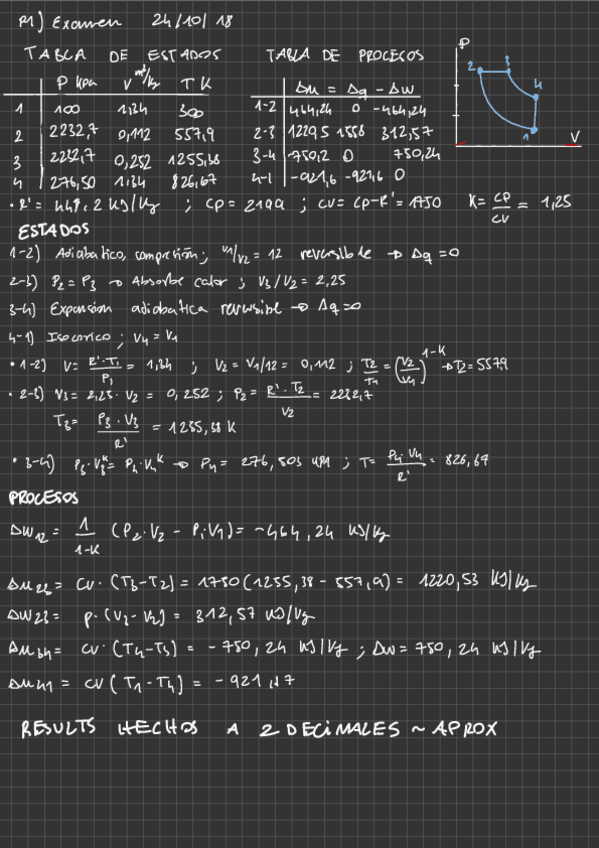 P1) Examen 24/10/18
TABLA DE ESTADOS
P kpa V m³/kg T K
1 100 1,34 300
2 2232,7 0,112 557,9
3 2232,7 0,252 1255,38
4 276,50 1.34 826,67
TABLA DE PROCESOS
Δu = Δq - Δw
1-2 464,24 0 -464,24
2-3 1220,5 1558 312,57
3-4 -750,2 0 750,24
4-1 -921,6 -921,6 0
P
2 3
4
1
V
• R' = 448,2 KJ/Kg ; CP = 2199 ; CV = CP-R' = 1750 K = CP/CV = 1,25
ESTADOS
1-2) Adiabatico, compresión; V1/V2 = 12 reversible → Δq = 0
2-3) P2 = P3 → Absorbe calor ; V3/V2 = 2,25
3-4) Expansion adiabatica reversible → Δq = 0
4-1) Isocorico ; V4 = V1
• 1-2) V = R'·T1/P1 = 1,34 ; V2 = V1/12 = 0,112 ; T2/T1 = (V2/V1)^1-K → T2 = 557,9
• 2-3) V3 = 2,25·V2 = 0,252 ; P2 = R'·T2/V2 = 2232,7
T3 = P3·V3/R' = 1255,38 K
• 3-4) P3·V3^K = P4·V4^K → P4 = 276,503 KPA ; T = P4·V4/R' = 826,67
PROCESOS
ΔW12 = 1/1-K (P2·V2 - P1·V1) = -464,24 KJ/Kg
Δu23 = CV·(T3-T2) = 1750(1255,38 - 557,9) = 1220,53 KJ/Kg
ΔW23 = P·(V3-V2) = 312,57 KJ/Kg
Δu34 = CV·(T4-T3) = -750,24 KJ/Kg ; Δw = 750,24 KJ/Kg
Δu41 = CV(T1-T4) =
RESULTS HECHOS A 2 DECIMALES ~ APROX